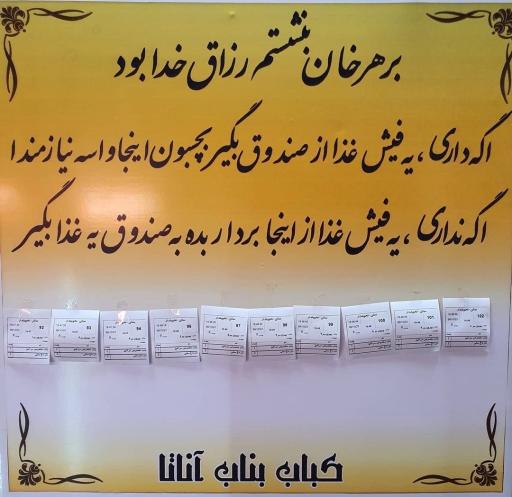 بر هر خان بنشستم رزاق خدا بود
اگه داری ، یه فیش غذا از صندوق بگیر بچسبون اینجا واسه نیازمندا
اگه نداری ، یه فیش غذا از اینجا بردار بده به صندوق یه غذا بگیر
92
93
94
96
97
98
99
100
101
102
کباب بناب آناتا